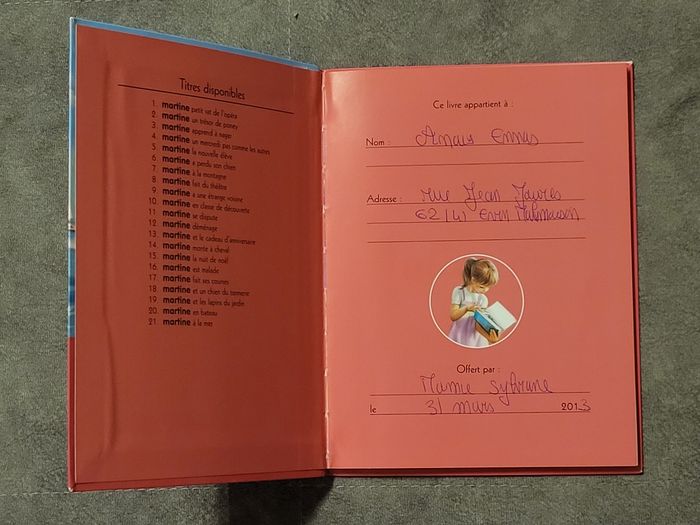 Titres disponibles
1. martine petit rat de l'opéra
2. martine un trésor de poney
3. martine apprend à nager
4. martine un mercredi pas comme les autres
5. martine la nouvelle élève
6. martine a perdu son chien
7. martine à la montagne
8. martine fait du théâtre
9. martine a une étrange voisine
10. martine en classe de découverte
11. martine se dispute
12. martine déménage
13. martine et le cadeau d'anniversaire
14. martine monte à cheval
15. martine la nuit de noël
16. martine est malade
17. martine fait ses courses
18. martine et un chien du tonnerre
19. martine et les lapins du jardin
20. martine en bateau
21. martine à la mer
Ce livre appartient à :
Nom : Anais Ennas
Adresse : rue Jean Jaures
62141 Evin Malmaison
Offert par :
Mamie Sylviane
le 31 mars 2013